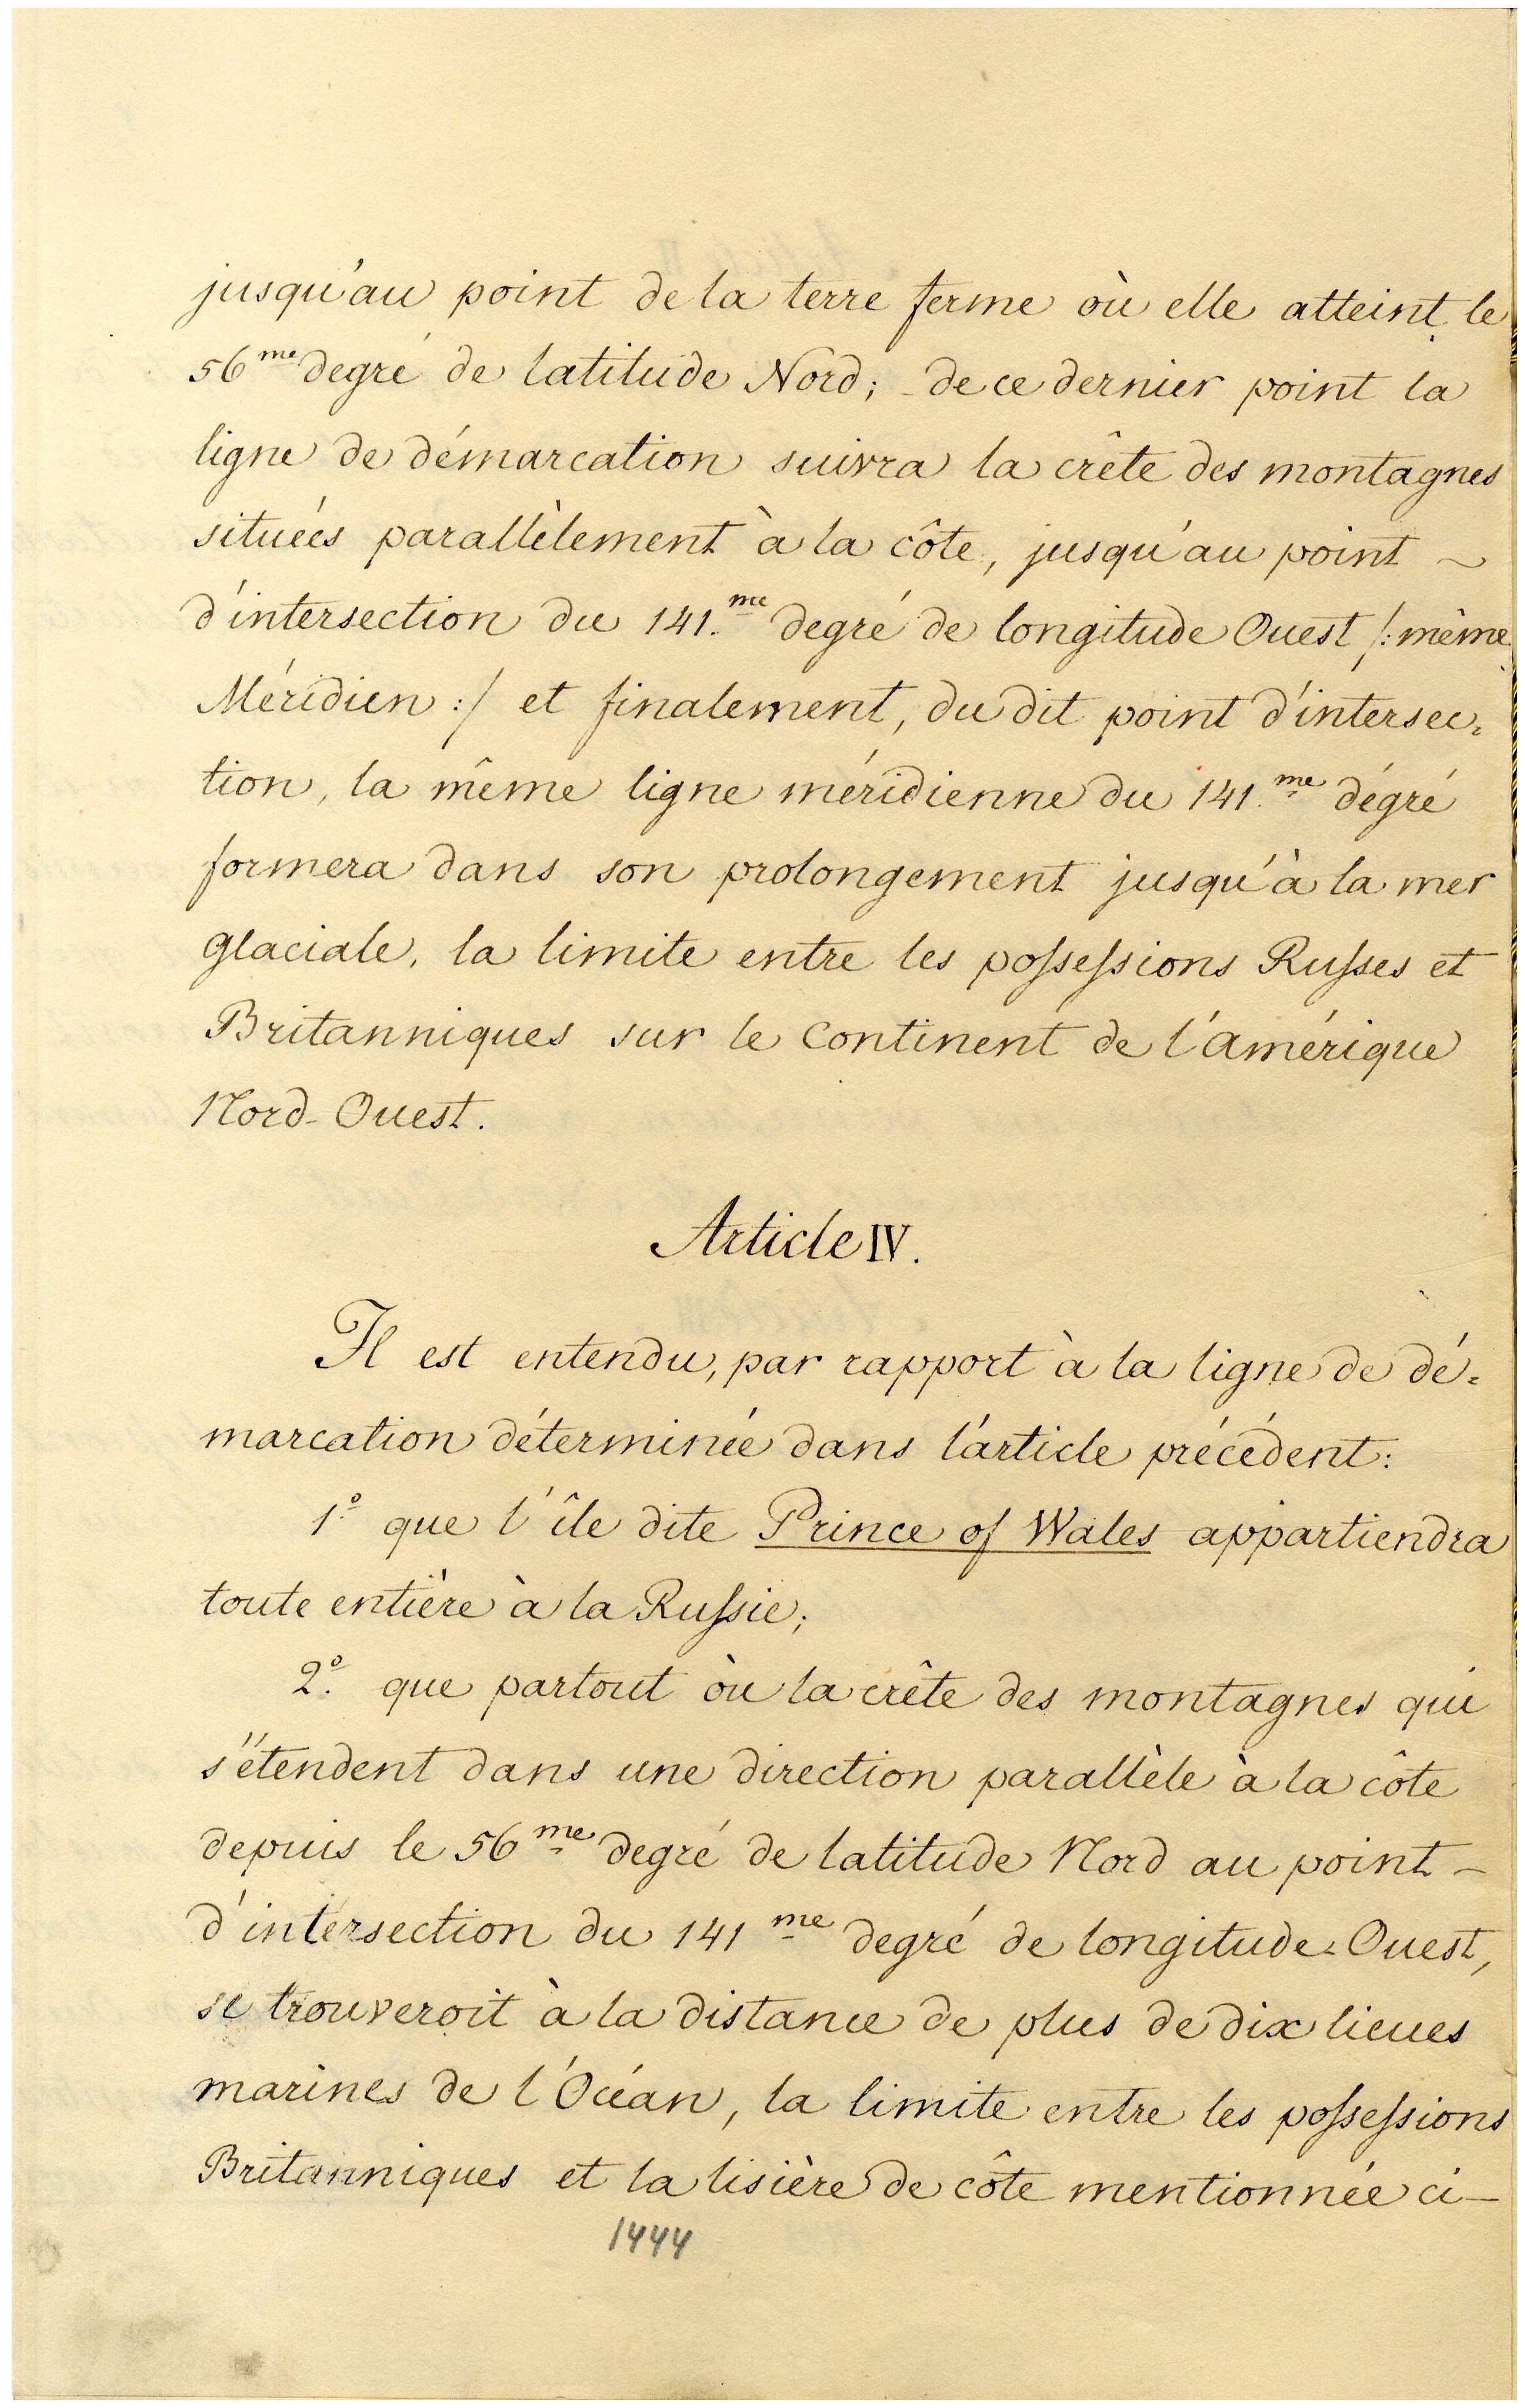 jusqu'au point de la terre ferme où elle atteint le
56me degré de latitude Nord; de ce dernier point la
ligne de démarcation suivra la crête des montagnes
situées parallèlement à la côte, jusqu'au point ~
d'intersection du 141.me degré de longitude Ouest /: même
Méridien :/ et finalement, du dit point d'intersec=
tion, la même ligne méridienne du 141.me dégré
formera dans son prolongement jusqu'à la mer
glaciale, la limite entre les poſseſsions Ruſses et
Britanniques sur le Continent de l'Amérique
Nord-Ouest.
Article IV.
Il est entendu, par rapport à la ligne de dé=
marcation déterminée dans l'article précédent:
1.º que l'île dite Prince of Wales appartiendra
toute entière à la Ruſsie;
2.º que partout où la crête des montagnes qui
s'étendent dans une direction parallèle à la côte
depuis le 56me degré de latitude Nord au point –
d'intersection du 141me degré de longitude Ouest,
se trouveroit à la distance de plus de dix lieues
marines de l'Océan, la limite entre les poſseſsions
Britanniques et la lisière de côte mentionnée ci–
1444